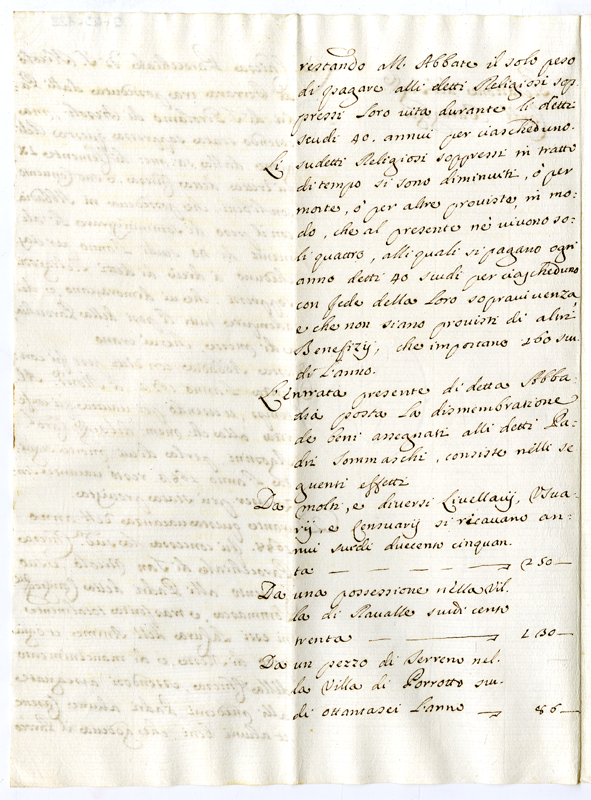 restando all Abbate il solo peso
di pagare alli detti Religiosi sop
pressi loro vita durante li detti
scudi 40. annui per ciascheduno.
Li sudetti Religiosi soppressi in tratto
di tempo si sono diminuiti, ò per
morte, ò per altre proviste, in mo:
do, che al presente nè vivono so:
li quattro, alli quali si pagano ogni
anno detti 40 scudi per ciascheduno
con fede della loro sopravivenza
e che non siano provisti di altri
Benefizij, che importano 160 scu.
di l'anno.
L'Entrata presente di detta Abba:
dia posta la dismembratione
de beni assegnati alli detti Pa:
dri Sommaschi, consiste nelli se
guenti effetti
Da molti, e diversi Livellarij, Usua:
rij, e Censuarij si ricavano an:
nui scudi duecento cinquan.
ta — 250 —
Da una possessione nella Vil.
la di Ravalle scudi cento
trenta — 130 —
Da un pezzo di Terreno nel.
la Villa di Porrotto scu.
di ottantasei l'anno — 86 —